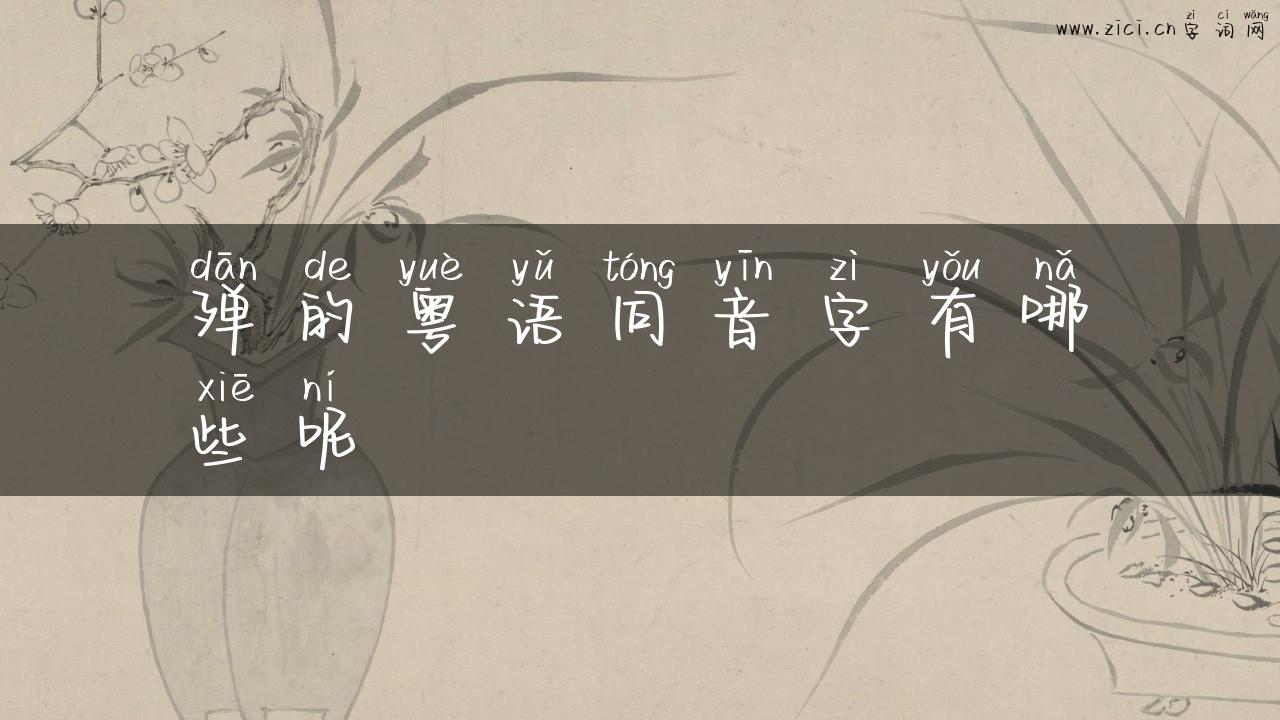 zì cí wǎng
www.zici.cn 字词网
dān de yuè yǔ tóng yīn zì yǒu nǎ
殚的粤语同音字有哪
xiē ní
些呢